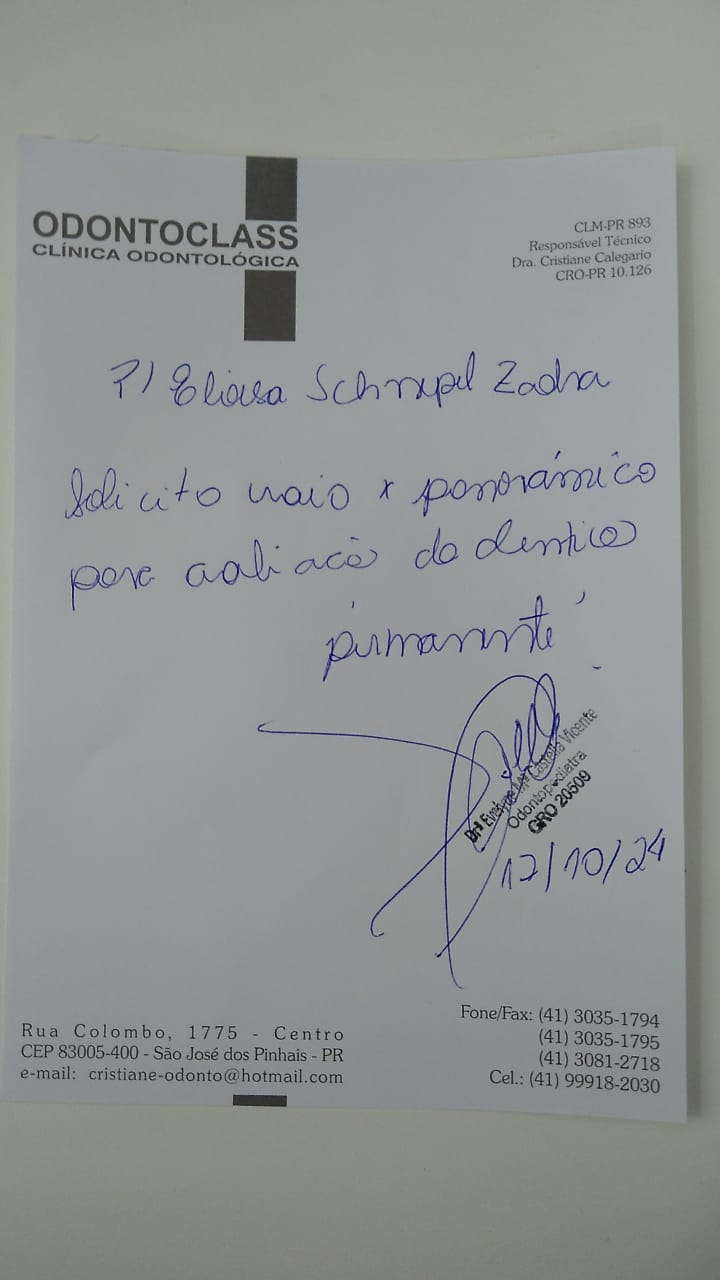 ODONTOCLASS
CLÍNICA ODONTOLÓGICA
CLM-PR 893
Responsável Técnico
Dra. Cristiane Calegario
CRO-PR 10.126
P/ Schnepel Zadra
Solicito raio x panorâmico
para avaliação da dentição
permanente
Castella Vicente
Odontopediatra
CRO 20509
17/10/24
Rua Colombo, 1775 - Centro
CEP 83005-400 - São José dos Pinhais - PR
e-mail: cristiane-odonto@hotmail.com
Fone/Fax: (41) 3035-1794
(41) 3035-1795
(41) 3081-2718
Cel.: (41) 99918-2030